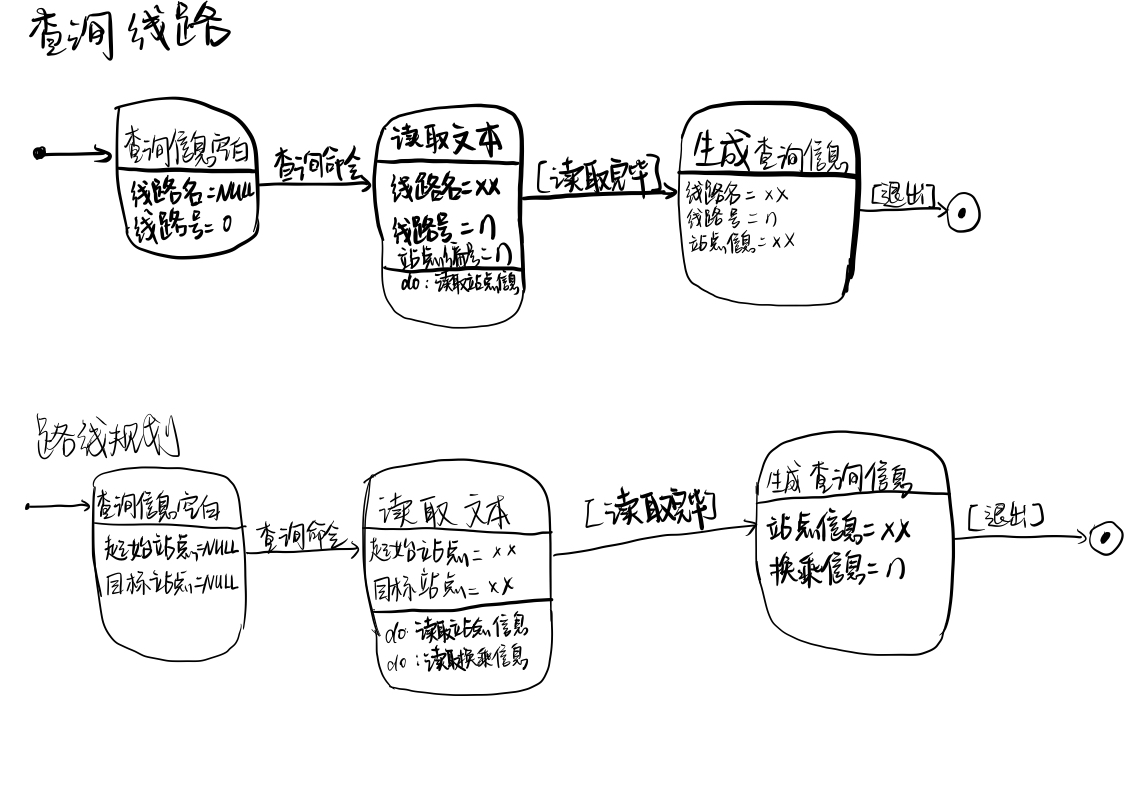 查询线路
查询信息空白
线路名=NULL
线路号=0
查询命令
读取文本
线路名=xx
线路号=n
站点编号=n
do:读取站点信息
[读取完毕]
生成查询信息
线路名=xx
线路号=n
站点信息=xx
[退出]
路线规划
查询信息空白
起始站点=NULL
目标站点=NULL
查询命令
读取文本
起始站点=xx
目标站点=xx
do:读取站点信息
do:读取换乘信息
[读取完毕]
生成查询信息
站点信息=xx
换乘信息=n
[退出]